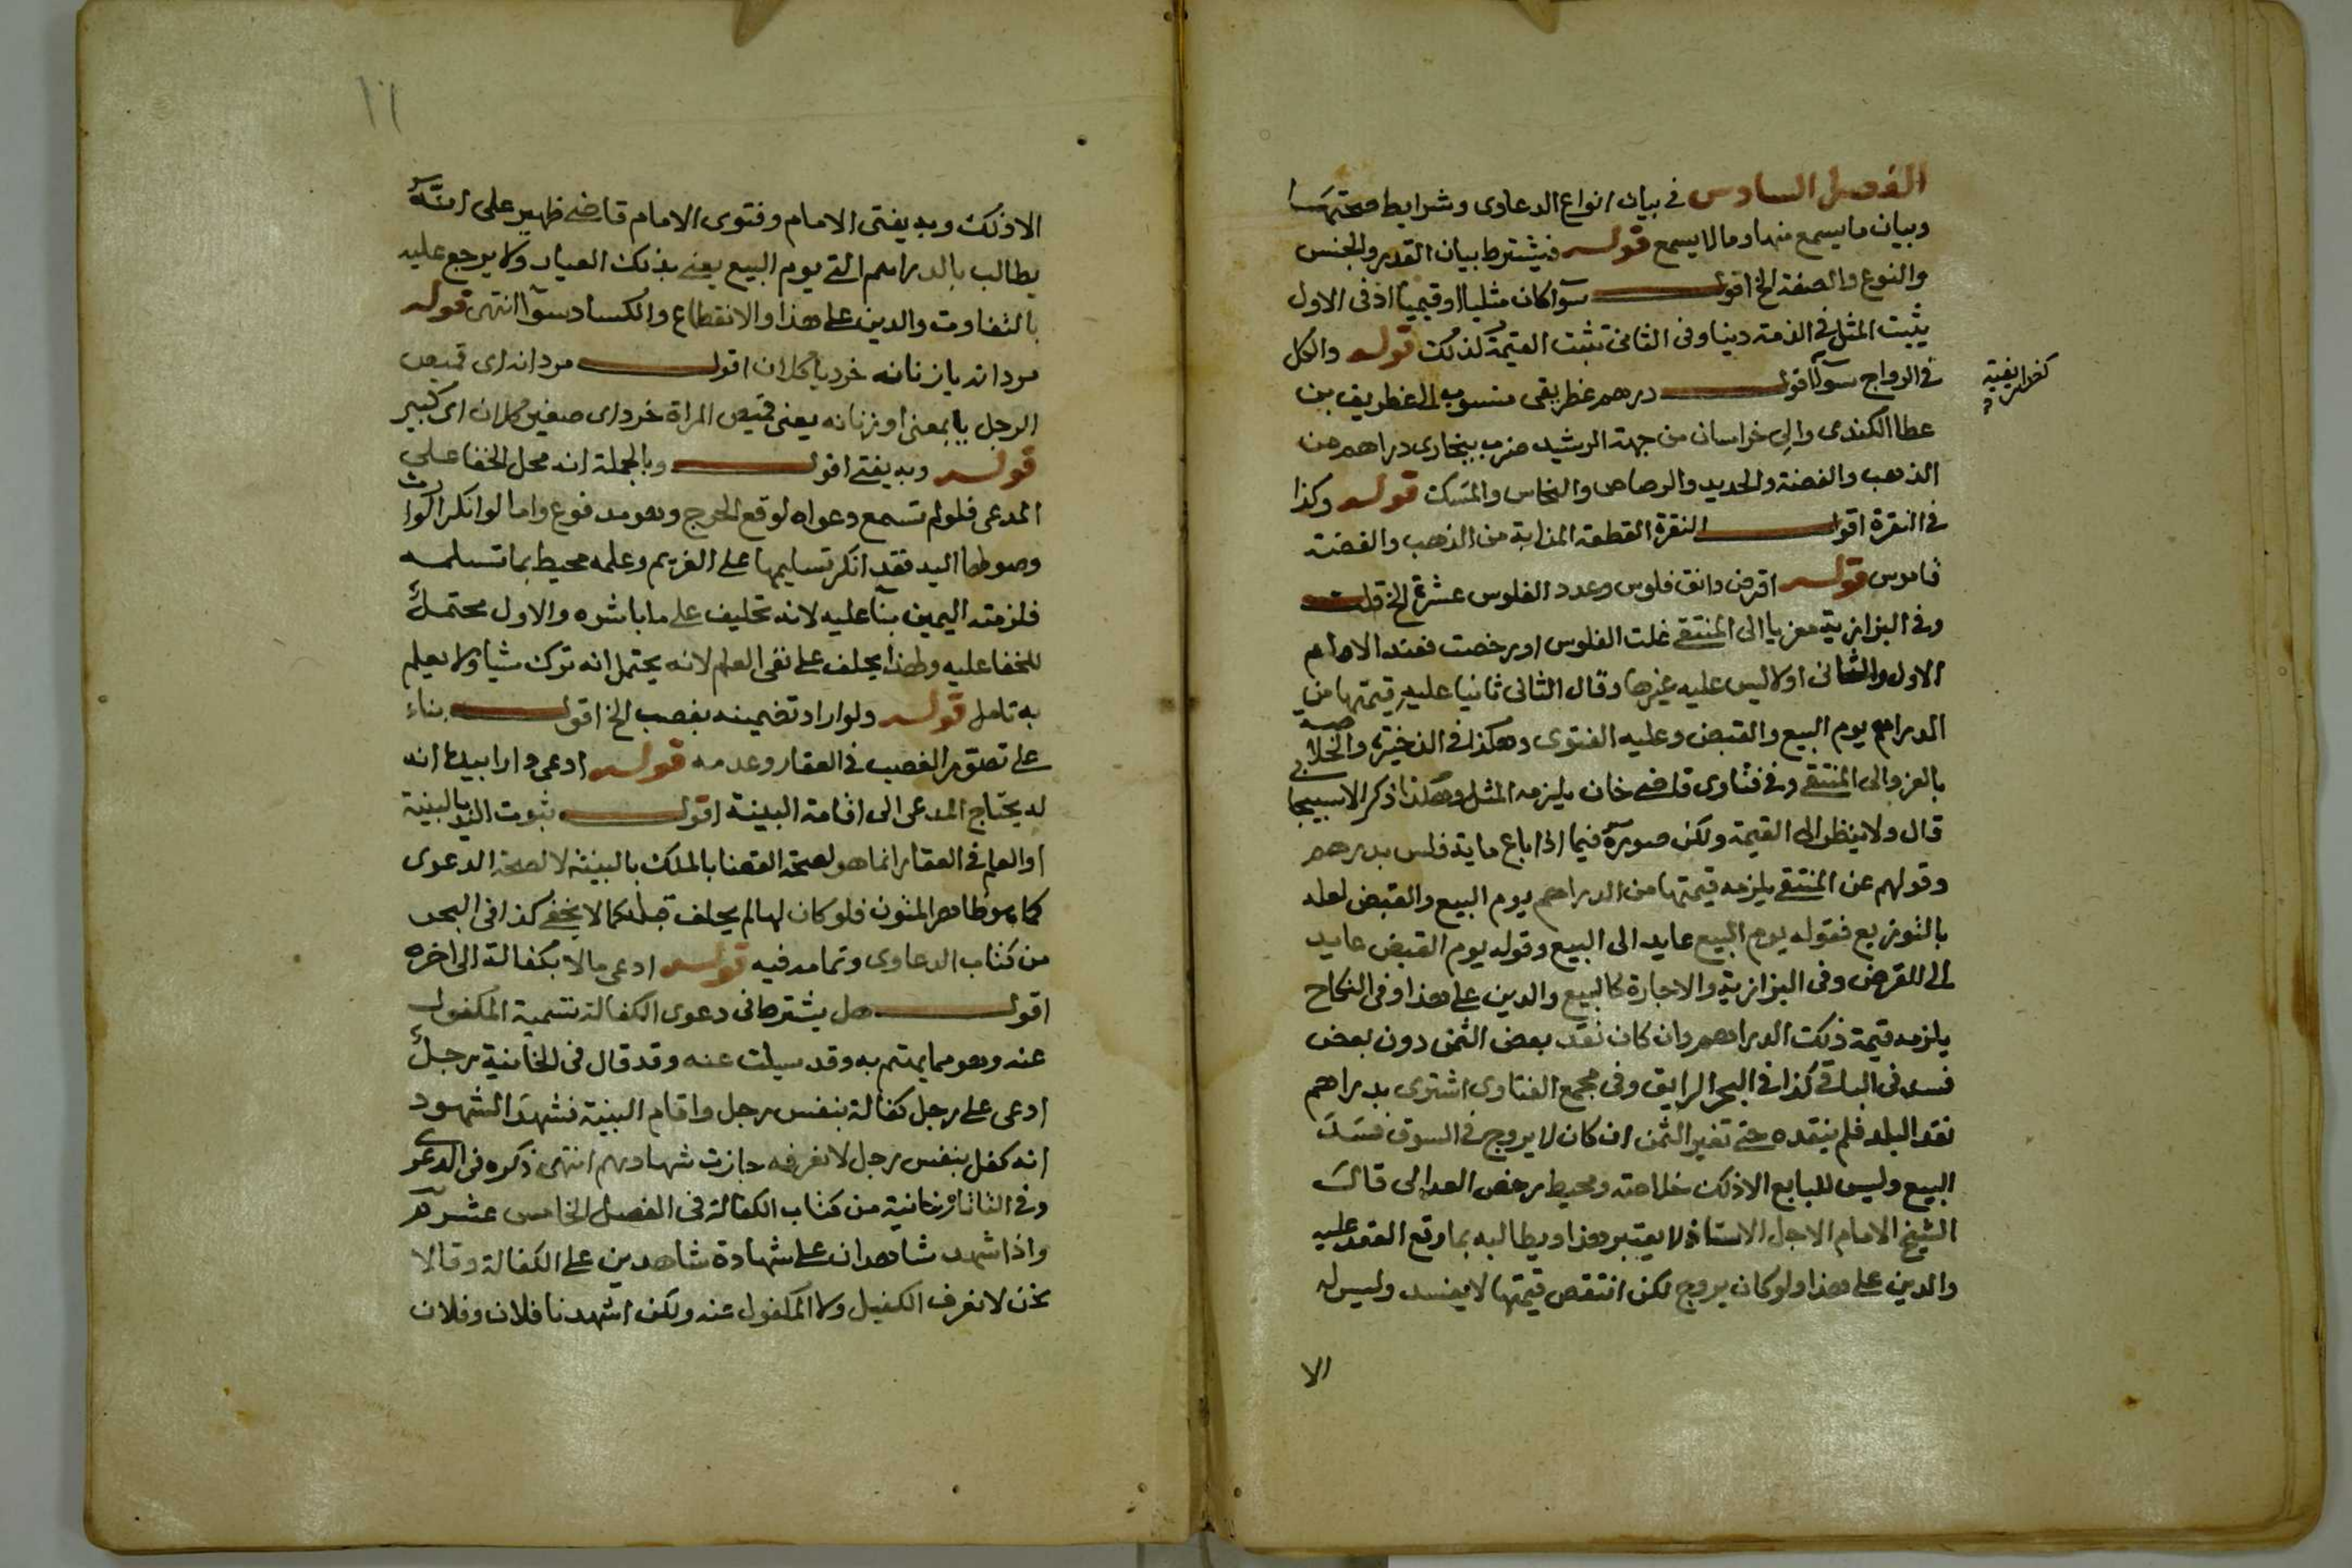 الفصل السادس في بيان انواع الدعاوى وشرايط صحتها
وبيان ما يسمع منها وما لا يسمع قوله فيشترط بيان القدر والجنس
والنوع والصفة الخ اقول سوآ كان مثليا او قيميا اذ فى الاول
يثبت المثل في الذمة دينا وفى الثانى تثبت القيمة كذلك قوله والكل
في الرواج سوآ اقول درهم غطريقى منسوب الى غطريف بن
عطا الكندى والى خراسان من جهة الرشيد ضرب ببخارى دراهم من
الذهب والفضة والحديد والرصاص والنحاس والمسك قوله وكذا
في النقرة اقول النقرة القطعة المذابة من الذهب والفضة
قاموس قوله اقرض دانق فلوس وعدد الفلوس عشرة الخ قلت
وفى البزازية معزيا الى المنتقى غلت الفلوس او رخصت فعند الامام
الاول والثانى اولا ليس عليه غيرها وقال الثانى ثانيا عليه قيمتها من
الدراهم يوم البيع والقبض وعليه الفتوى وهكذا في الذخيرة والخلاصة
بالعزو الى المنتقى وفى فتاوى قاضى خان يلزمه المثل وهكذا ذكر الاسبيجابى
قال ولا ينظر الى القيمة ولكن صوره فيما اذا باع ماية فلس بدرهم
وقولهم عن المنتقى يلزمه قيمتها من الدراهم يوم البيع والقبض لعله
بالتوزيع فقوله يوم البيع عايد الى البيع وقوله يوم القبض عايد
الى القرض وفى البزازية والاجارة كالبيع والدين على هذا وفى النكاح
يلزمه قيمة ذلك الدراهم وان كان نقد بعض الثمن دون بعض
فسد فى الباقى كذا في البحر الرايق وفى مجمع الفتاوى اشترى بدراهم
نقد البلد فلم ينقده حتى تغير الثمن ان كان لا يروج في السوق فسد
البيع وليس للبايع الا ذلك خلاصة ومحيط رخص العدالى قال
الشيخ الامام الاجل الاستاذ لا يعتبر هذا ويطالبه بما وقع العقد عليه
والدين على هذا ولو كان يروج لكن انتقص قيمتها لا يفسد وليس له
الا
الا ذلك وبه يفتى الامام وفتوى الامام قاضى ظهير على انه
يطالب بالدراهم التى يوم البيع يعنى بذلك العيار ولا يرجع عليه
بالتفاوت والدين على هذا والانقطاع والكساد سوآ انتهى قوله
مردانه يا زنانه خرد يا كلان اقول مردانه اى قميص
الرجل يا بمعنى او زنانه يعنى قميص المراة خرد اى صغير كلان اى كبير
قوله وبه يفتى اقول وبالجملة انه محل الخفا على
المدعى فلو لم تسمع دعواه لوقع الحرج وهو مدفوع واما لو انكر الوارث
وصولها اليه فقد انكر تسليمها على الغريم وعلمه محيط بما تسلمه
فلزمته اليمين بنآ عليه لانه تحليف على ما باشره والاول محتمل
للخفا عليه ولهذا يحلف على نفى العلم لانه يحتمل انه ترك شيا ولا يعلم
به تامل قوله ولو اراد تضمينه بغصب الخ اقول بناء
على تصور الغصب في العقار وعدمه قوله ادعى دارا بيدها انه
له يحتاج المدعى الى اقامة البينة اقول ثبوت اليد بالبينة
او العلم في العقار انما هو لصحة القضا بالملك بالبينة لا لصحة الدعوى
كما هو ظاهر المتون فلو كان لها لم يحلف قبله كما لا يخفى كذا فى البحر
من كتاب الدعاوى وتمامه فيه قوله ادعى مالا بكفالة الى اخره
اقول هل يشترط فى دعوى الكفالة تسمية المكفول
عنه وهو مما يهتم به وقد سيلت عنه وقد قال فى الخانية رجل
ادعى على رجل كفالة بنفس رجل واقام البينة فشهد الشهود
انه كفل بنفس رجل لا نعرفه جازت شهادتهم انتهى ذكره فى الدعوى
وفى التاتارخانية من كتاب الكفالة فى الفصل الخامس عشر
واذا شهد شاهدان على شهادة شاهدين على الكفالة وقالا
نحن لا نعرف الكفيل ولا المكفول عنه ولكن اشهدنا فلان وفلان